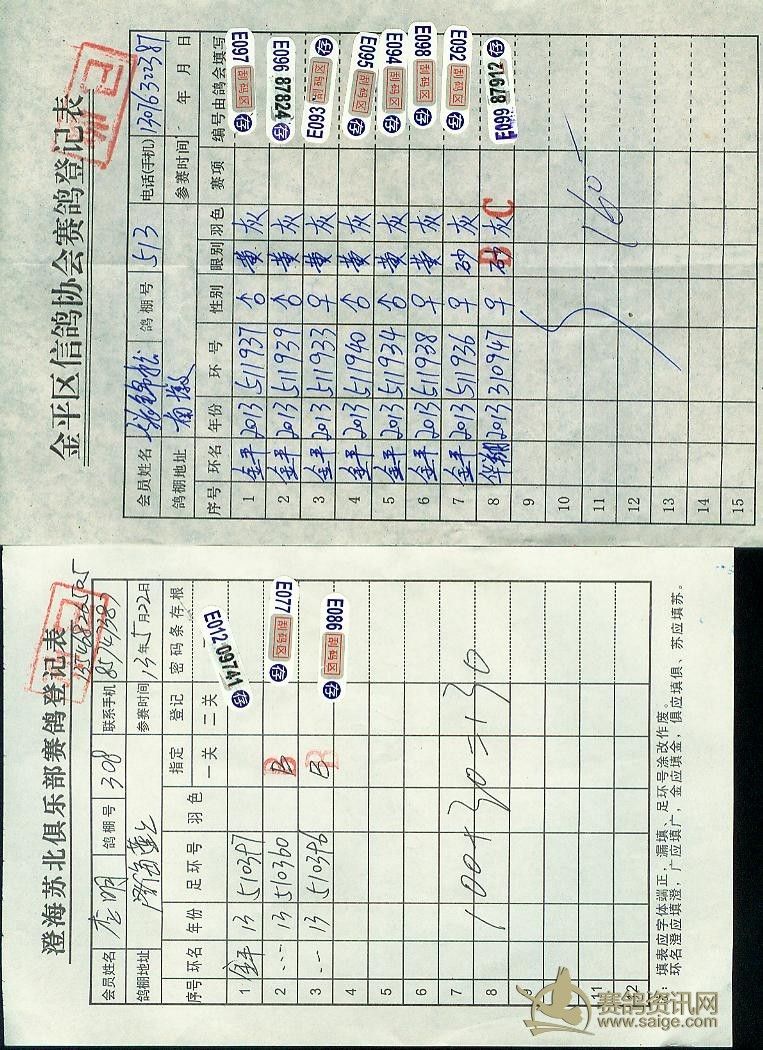 金平区信鸽协会赛鸽登记表
会员姓名 鸽棚号 513 电话(手机) 13076322387
鸽棚地址 参赛时间 年 月 日
序号 环名 年份 环号 性别 眼别 羽色 赛项 编号由鸽会填写
1 金平 2013 511937 ♂ 黄 灰 E097 刮码区 存
2 金平 2013 511939 ♂ 黄 灰 E096 87824 存
3 金平 2013 511933 ♀ 黄 灰 E093 存
4 金平 2013 511940 ♂ 黄 灰 E095 刮码区 存
5 金平 2013 511934 ♂ 黄 灰 E094 刮码区 存
6 金平 2013 511938 ♀ 黄 灰 E098 刮码区 存
7 金平 2013 511936 ♀ 砂 灰 E092 刮码区 存
8 华翔 2013 310947 ♀ 砂 B 灰 C E099 87912 存
9
10
11 160
12
13
14
15
澄海苏北俱乐部赛鸽登记表
会员姓名 鸽棚号 308 联系手机
鸽棚地址 参赛时间 13年5月22日
序号 环名 年份 足环号 羽色 指定 登记 密码条存根
一关 二关
1 金平 13 510357 E012 09741 存
2 13 510360 B E077 刮码区 存
3 13 510356 B E086 刮码区 存
4
5
6
7
8 100+30=130
9
11
12
填表应字体端正，漏填、足环号涂改作废。
环名澄应填澄，广应填广，金应填金，俱应填俱、苏应填苏。
赛鸽资讯网
www.saige.com